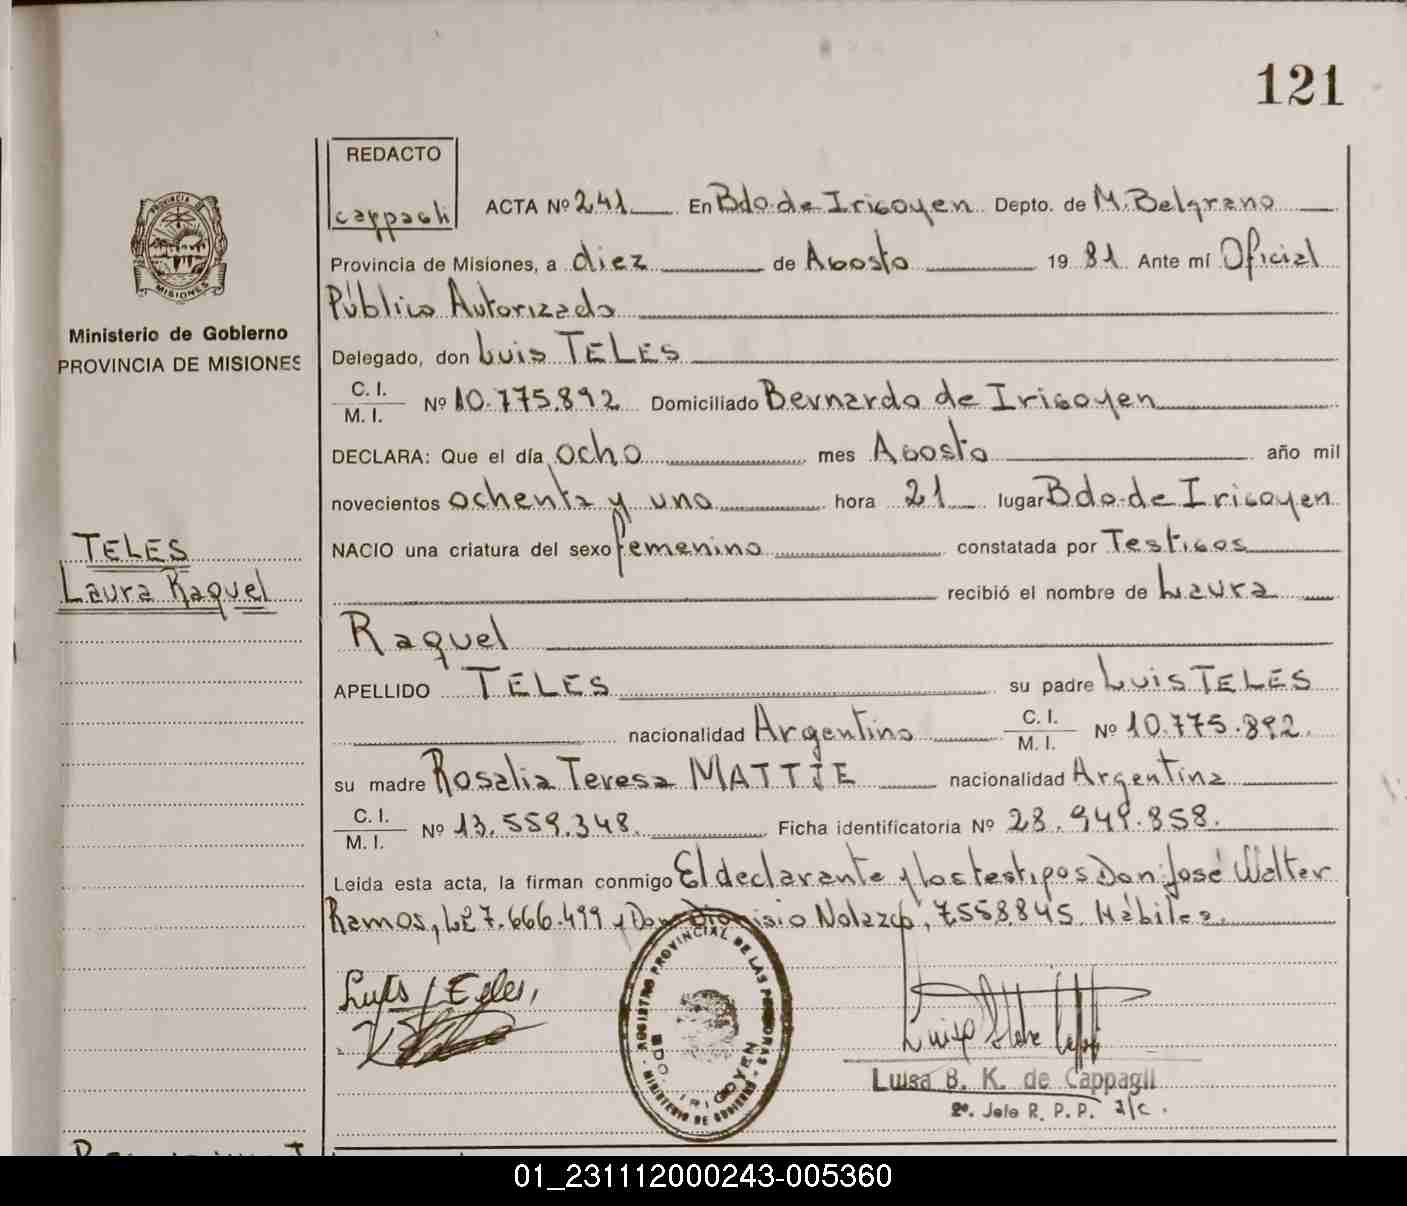 121
REDACTO
cappagli
ACTA Nº 241 En Bdo. de Irigoyen Depto. de M. Belgrano
Provincia de Misiones, a diez de Agosto 19 81 Ante mí Oficial
Público Autorizado
Delegado, don Luis TELES
C. I.
M. I. Nº 10.775.892 Domiciliado Bernardo de Irigoyen
DECLARA: Que el día ocho mes Agosto año mil
novecientos ochenta y uno hora 21 lugar Bdo. de Irigoyen
NACIO una criatura del sexo femenino constatada por Testigos
recibió el nombre de Laura
Raquel
APELLIDO TELES su padre Luis TELES
nacionalidad Argentino C. I.
M. I. Nº 10.775.892.
su madre Rosalia Teresa MATTJE nacionalidad Argentina
C. I.
M. I. Nº 13.559.348. Ficha identificatoria Nº 28.949.858.
Leída esta acta, la firman conmigo El declarante y los testigos Don José Walter
Ramos, LE 7.666.499 y Don Dionisio Nolazco, 7.558.845 Hábiles.
PROVINCIA DE
MISIONES
Ministerio de Gobierno
PROVINCIA DE MISIONES
TELES
Laura Raquel
Luis Teles,
REGISTRO PROVINCIAL DE LAS PERSONAS
MINISTERIO DE GOBIERNO
BDO. IRIGOYEN
Luisa B. K. de Cappagli
2º. Jefe R. P. P. a/c.
01_231112000243-005360